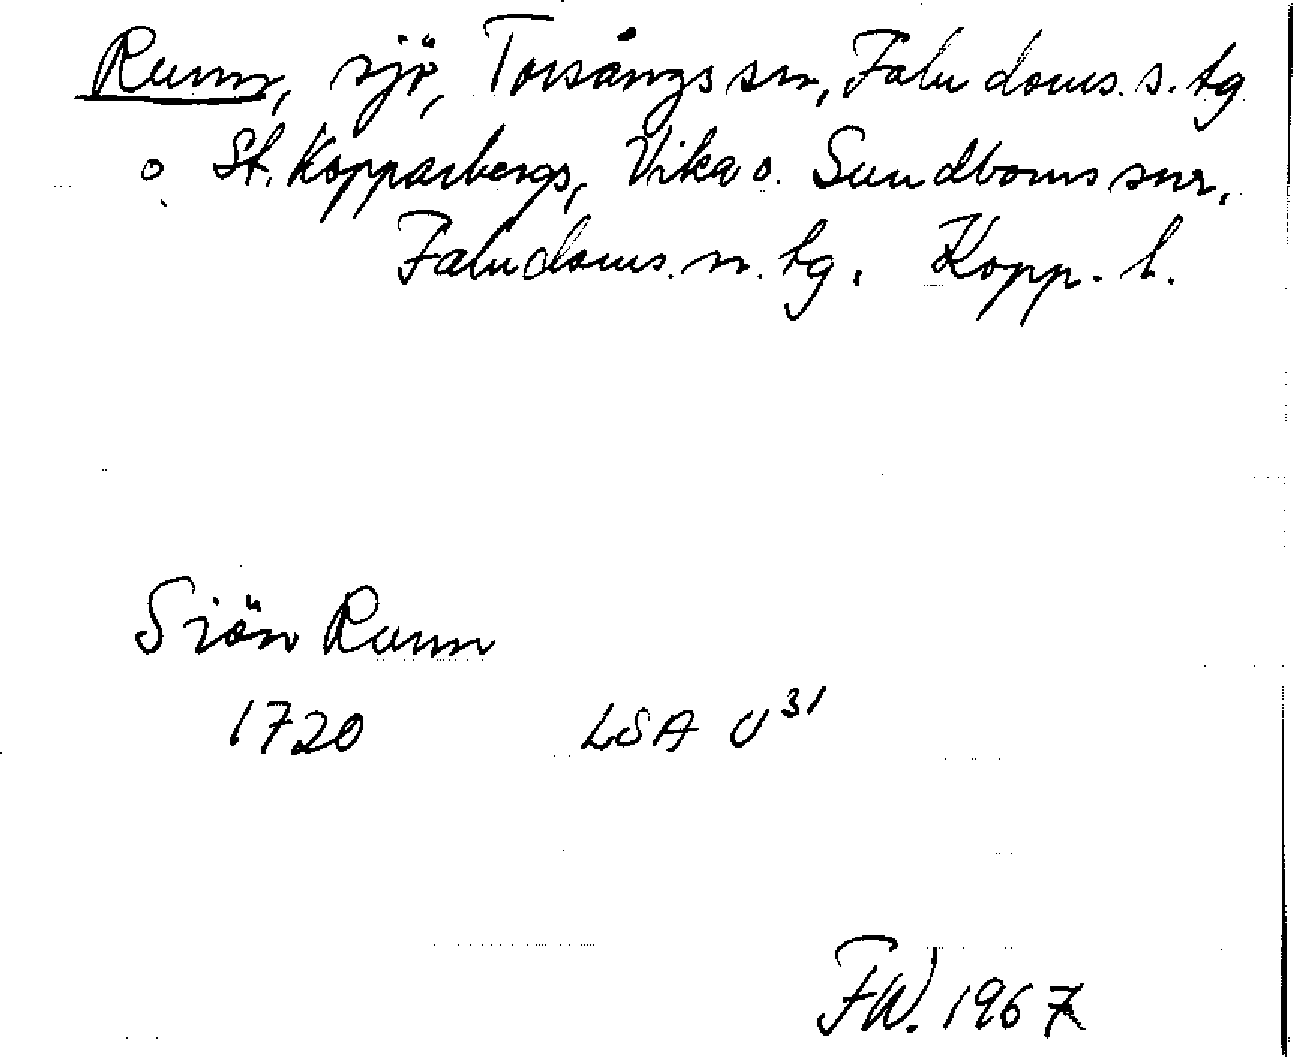 Runn, sjö, Torsångs sn, Falu doms. s. tg
o St. Kopparbergs, Vika o. Sundborns snr,
Falu doms. n. tg. Kopp. l.
Siön Runn
1720 LSA U 31
FW. 1967